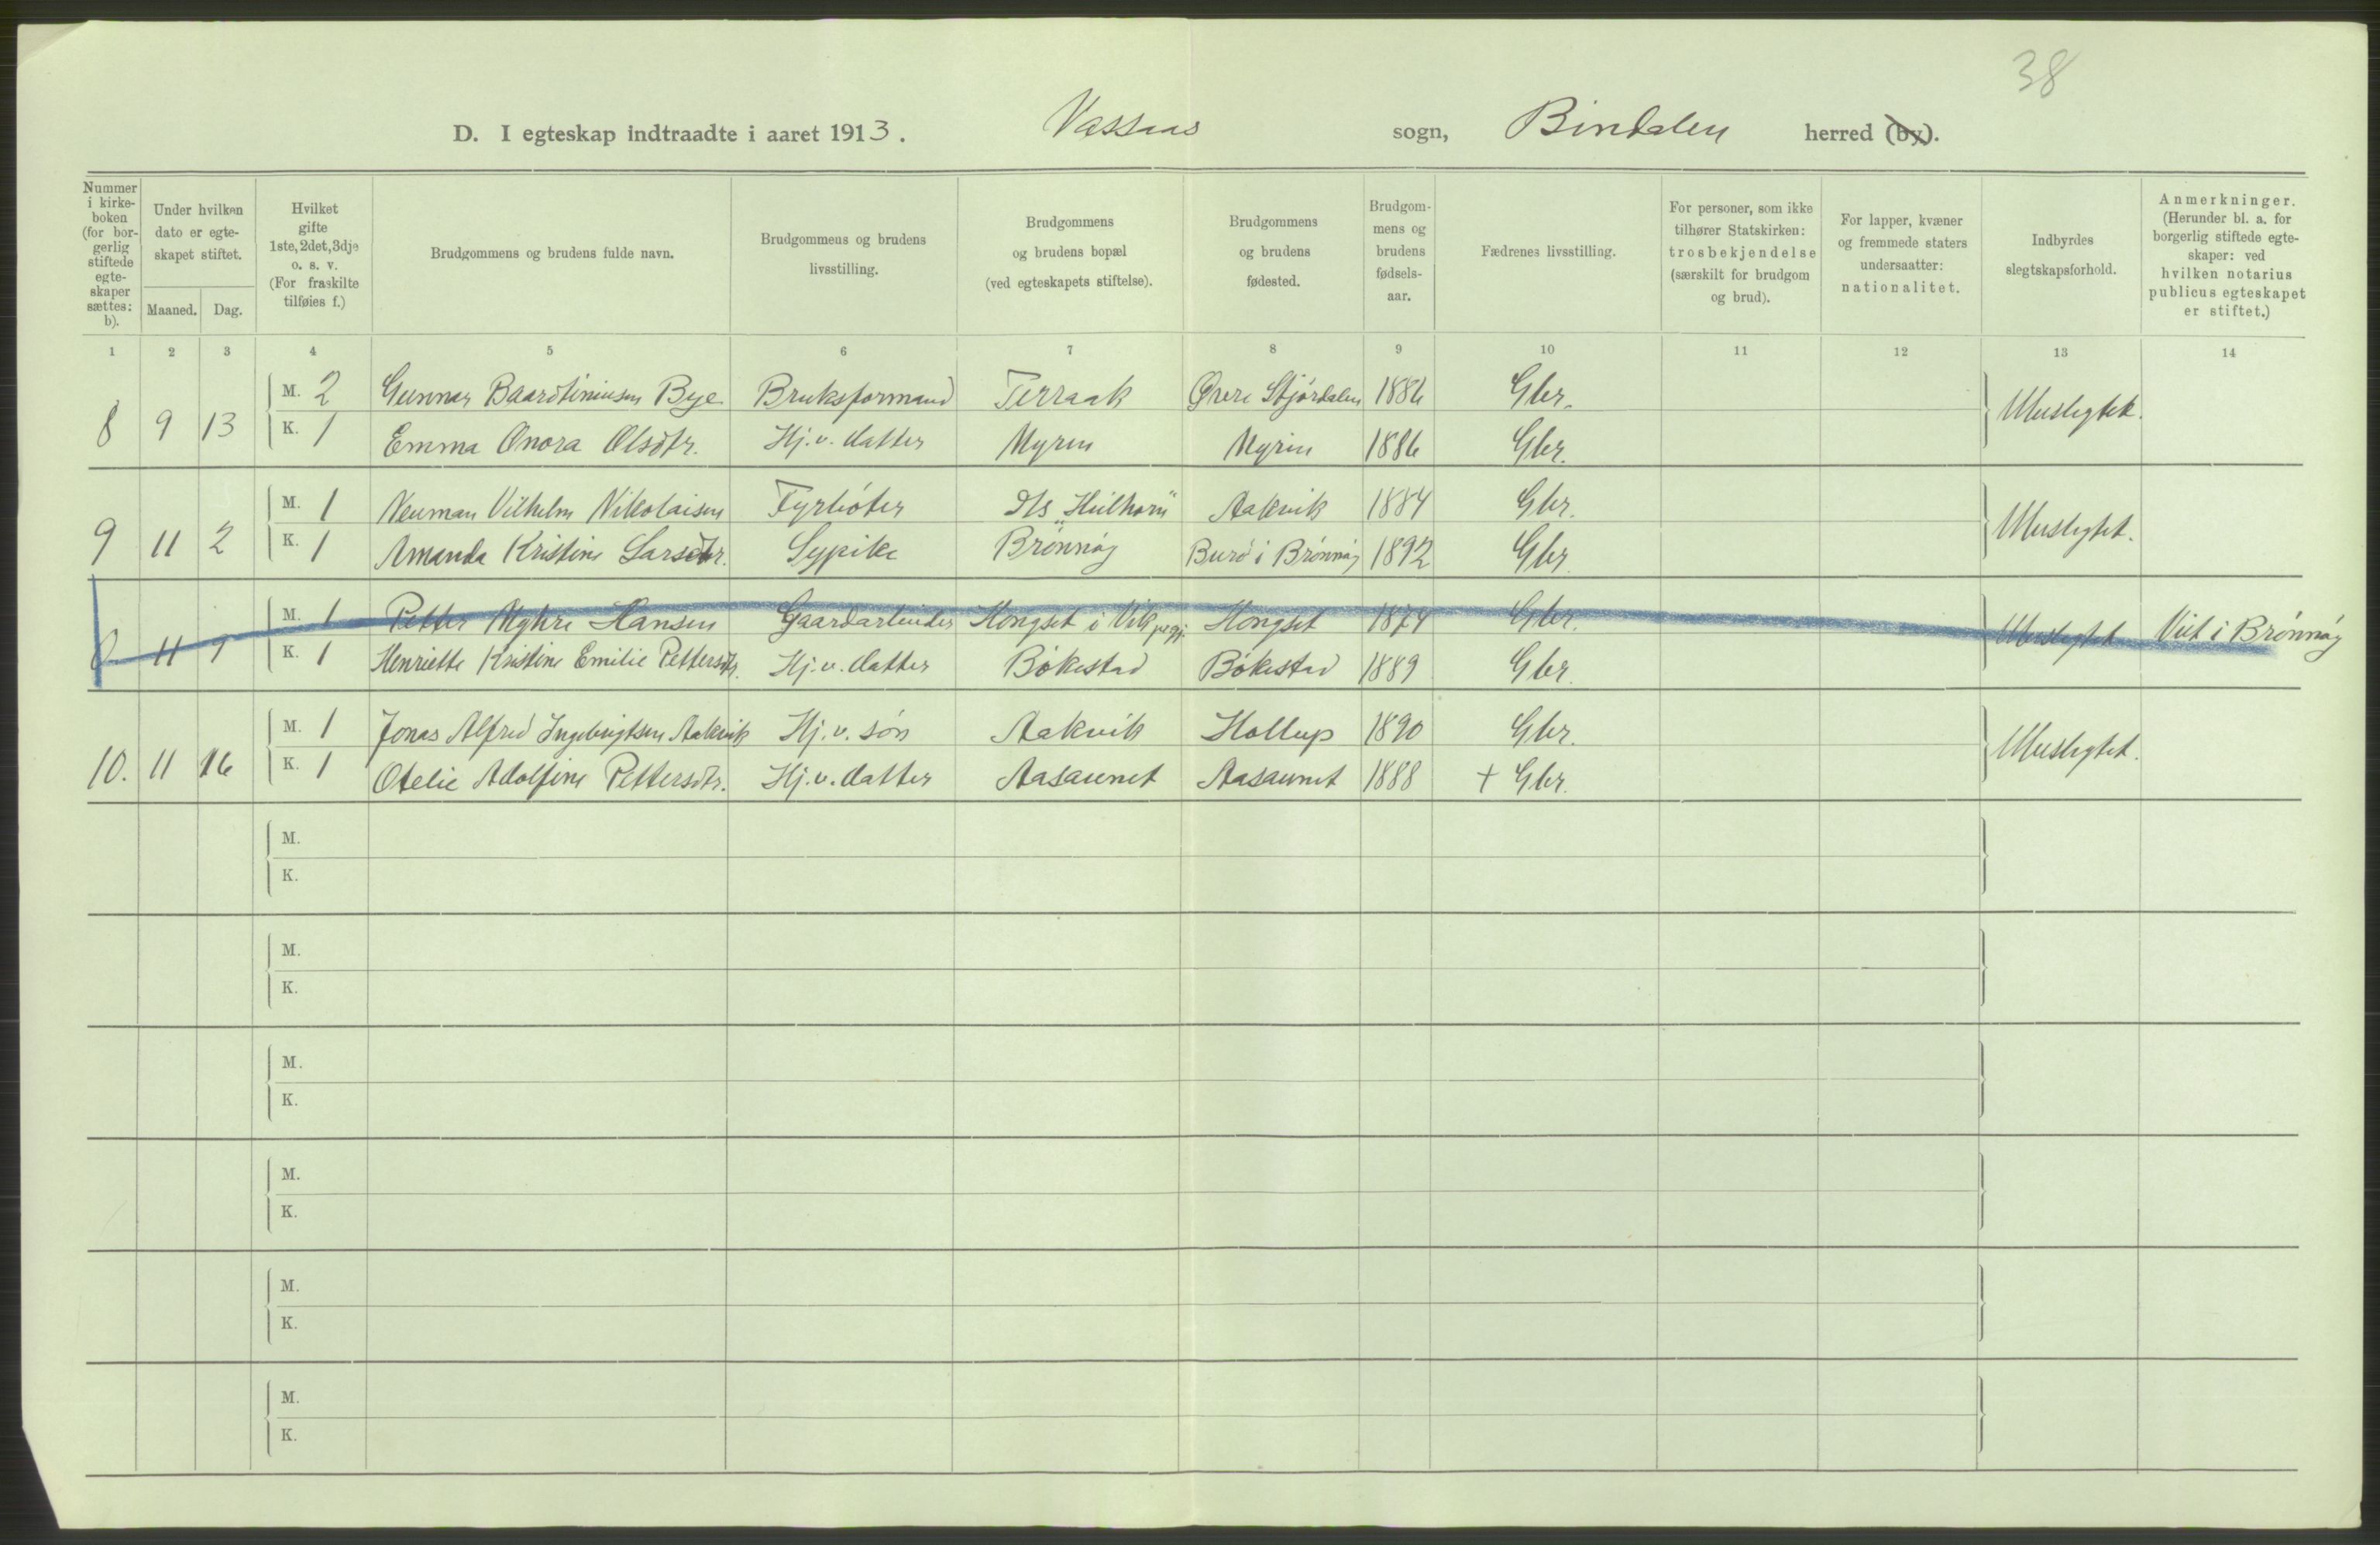 38
D. I egteskap indtraadte i aaret 1913. Vassaas sogn, Bindalen herred (by).
Nummer i kirkeboken (for borgerlig stiftede egteskaper sættes: b).
Under hvilken dato er egteskapet stiftet.
Maaned. Dag.
Hvilket gifte 1ste, 2det, 3dje o. s. v. (For fraskilte tilføies f.)
Brudgommens og brudens fulde navn.
Brudgommens og brudens livsstilling.
Brudgommens og brudens bopæl (ved egteskapets stiftelse).
Brudgommens og brudens fødested.
Brudgommens og brudens fødselsaar.
Fædrenes livsstilling.
For personer, som ikke tilhører Statskirken: trosbekjendelse (særskilt for brudgom og brud).
For lapper, kvæner og fremmede staters undersaatter: nationalitet.
Indbyrdes slegtskapsforhold.
Anmerkninger. (Herunder bl. a. for borgerlig stiftede egteskaper: ved hvilken notarius publicus egteskapet er stiftet.)
1 2 3 4 5 6 7 8 9 10 11 12 13 14
M. 2 Gunnar Baardtiniusen Bye Bruksformand Terraak Øvre Stjørdalen 1886 Gbr.
8 9 13 K. 1 Emma Onora Olsdtr. Hj. v. datter Myren Myren 1886 Gbr. Ubeslegtet.
M. 1 Neuman Vilhelm Nikolaisen Fyrbøter D/s "Heilhorn" Aakvik 1884 Gbr.
9 11 2 K. 1 Amanda Kristine Larsdtr. Sypike Brønnøy Burø i Brønnøy 1892 Gbr. Ubeslegtet.
M. 1 Petter Myhre Hansen Gaardarbeider Hongset i Vik prgj. Hongset 1874 Gbr. Ubeslegtet Viet i Brønnøy
11 9 K. 1 Henriette Kristine Emilie Pettersdtr. Hj. v. datter Bøkestad Bøkestad 1889 Gbr.
M. 1 Jonas Alfred Ingebrigtsen Aakvik Hj. v. søn Aakvik Hollup 1890 Gbr.
10. 11 16 K. 1 Otelie Adolfine Pettersdtr. Hj. v. datter Aasaunet Aasaunet 1888 + Gbr. Ubeslegtet.
M.
K.
M.
K.
M.
K.
M.
K.
M.
K.
M.
K.